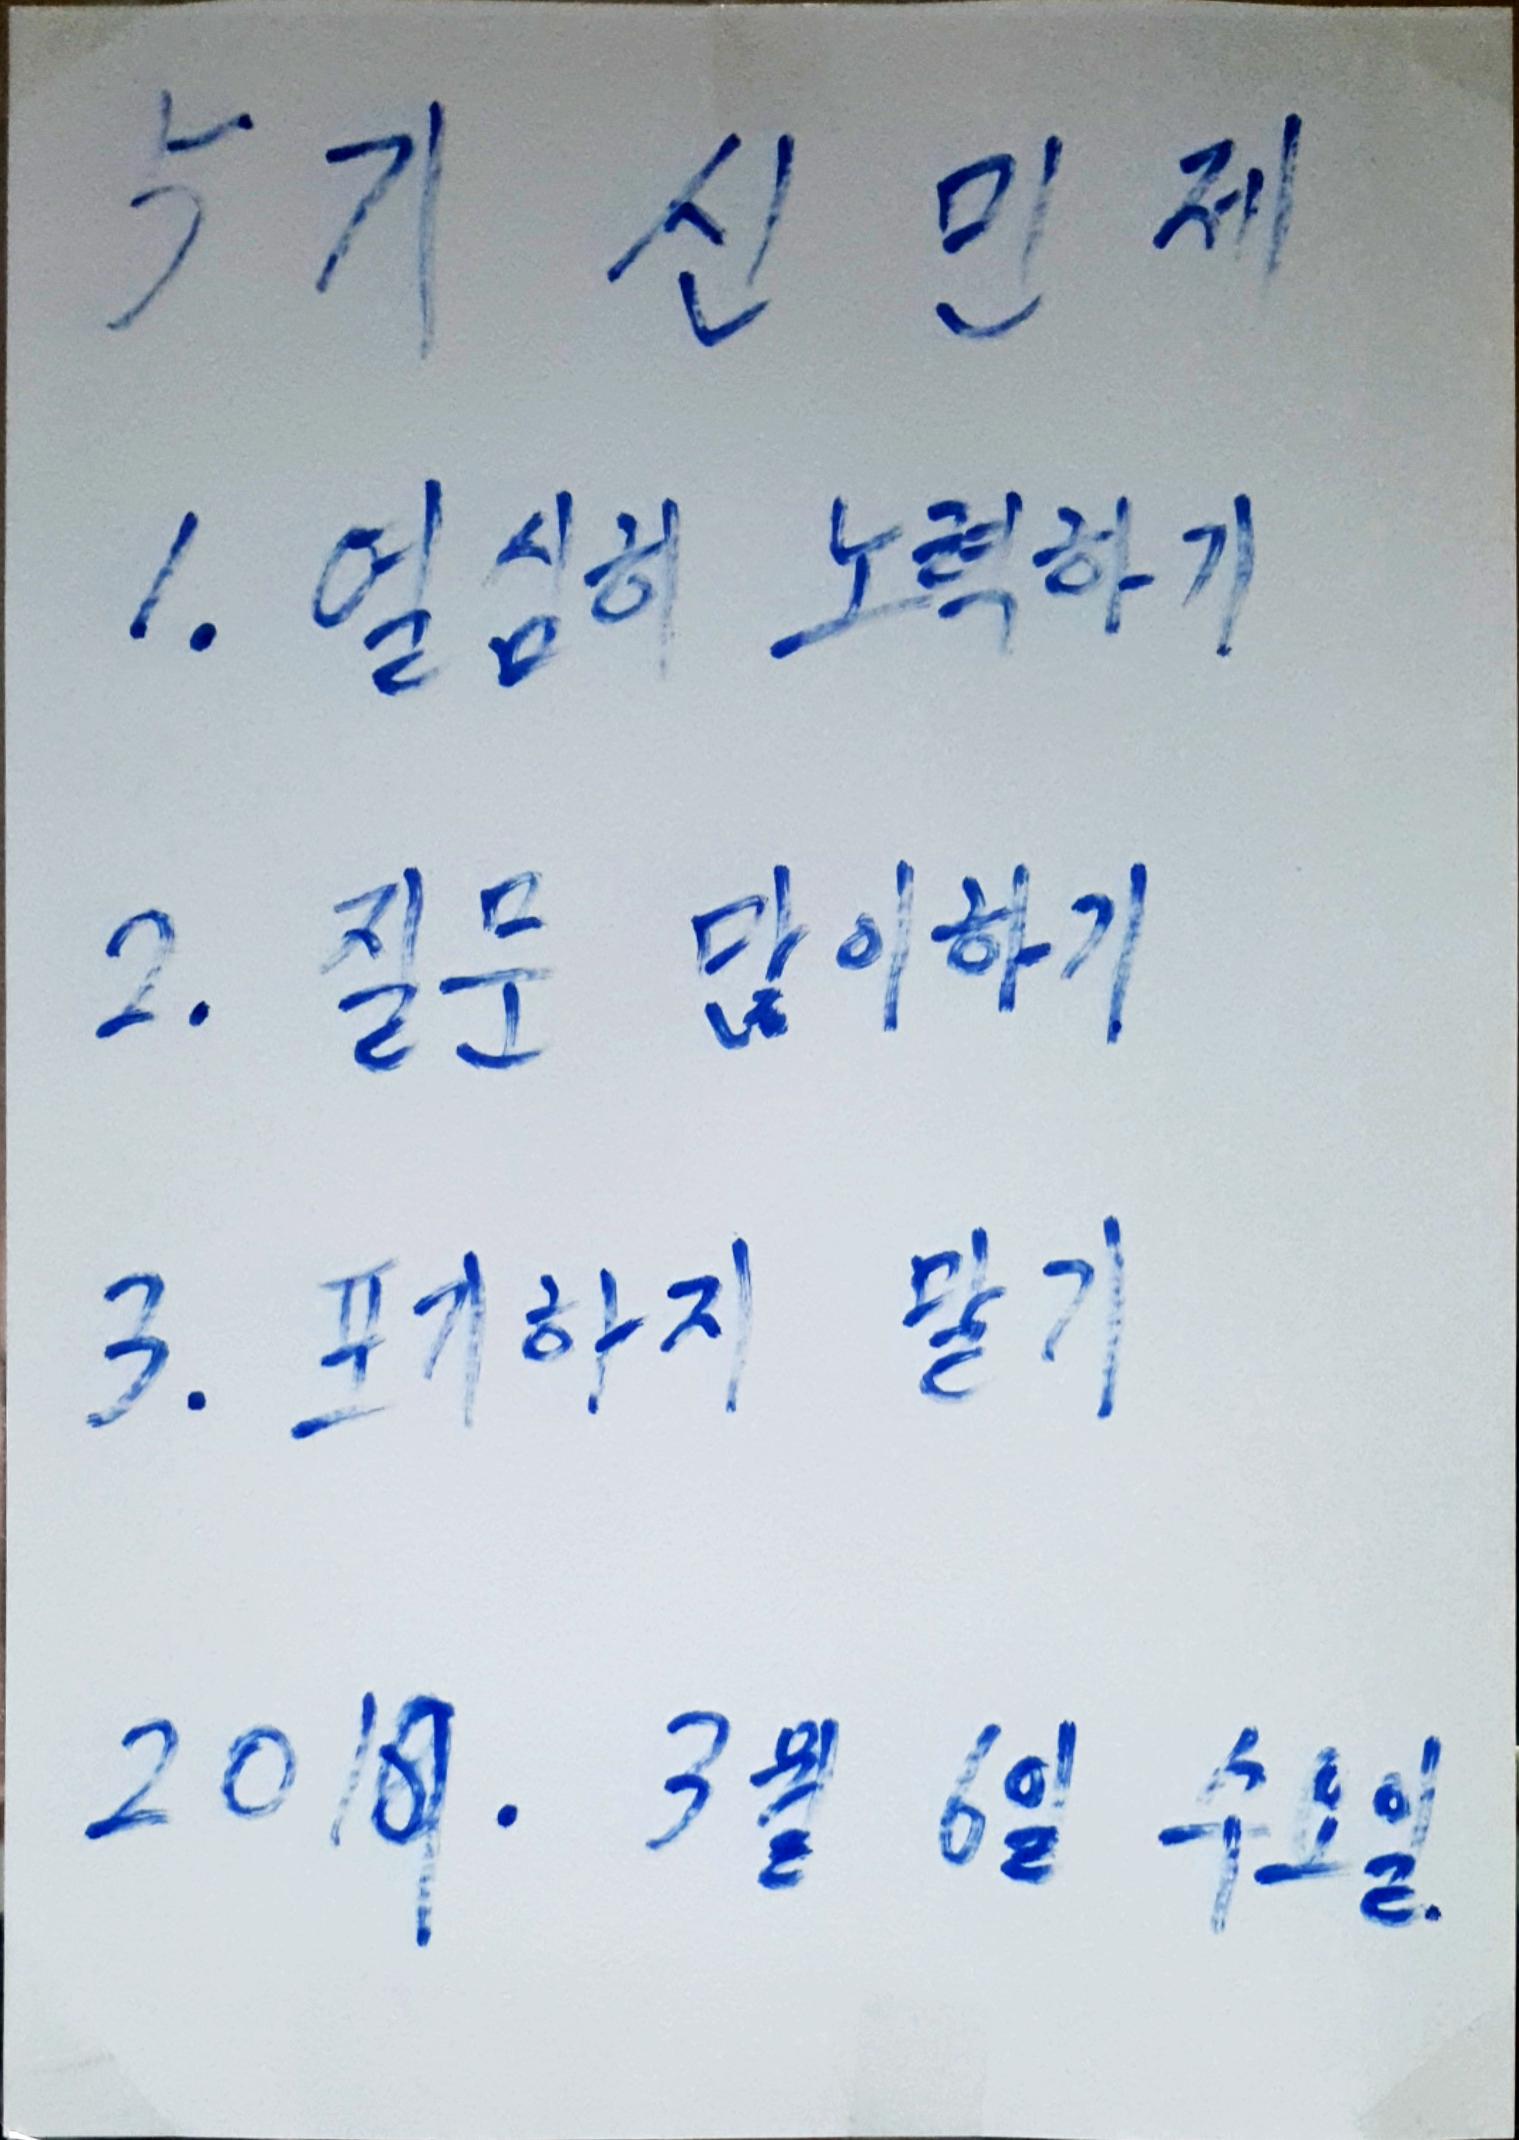 5기 신민제
1. 열심히 노력하기
2. 질문 많이하기
3. 포기하지 말기
2019. 3월 6일 수요일.